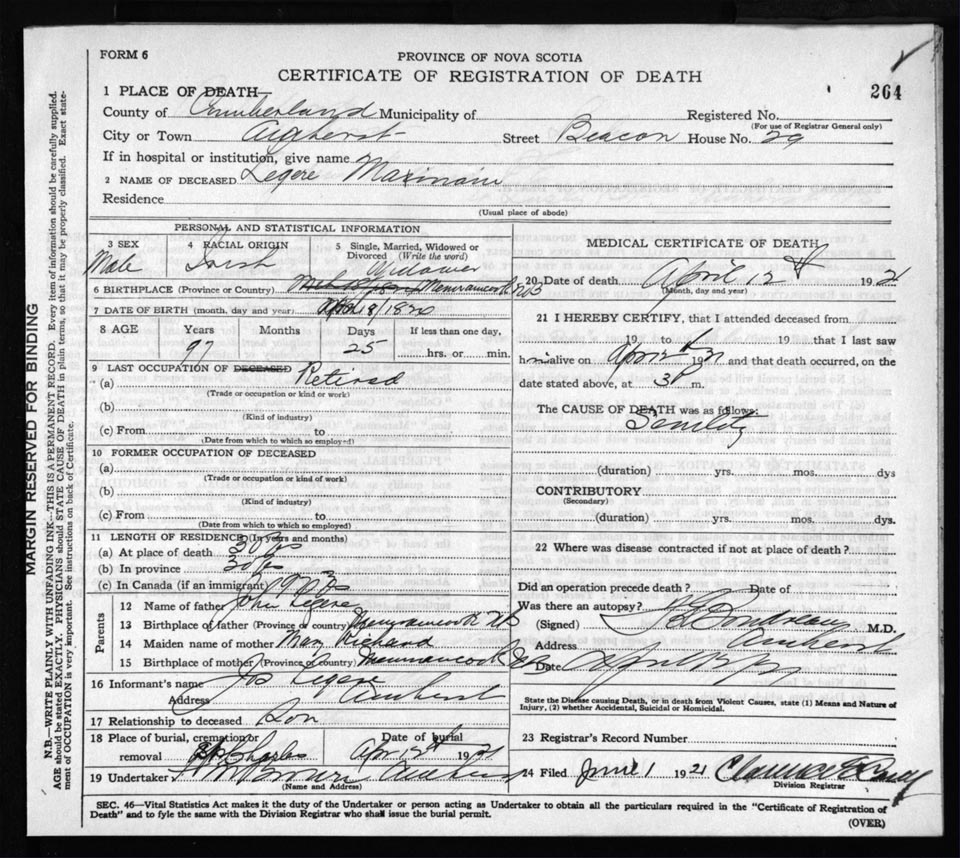 FORM 6
PROVINCE OF NOVA SCOTIA
CERTIFICATE OF REGISTRATION OF DEATH
264
1 PLACE OF DEATH—
County of Cumberland Municipality of Registered No.
(For use of Registrar General only)
City or Town Amherst Street Beacon House No. 29
If in hospital or institution, give name
2 NAME OF DECEASED Legere Maximain
Residence
(Usual place of abode)
PERSONAL AND STATISTICAL INFORMATION
3 SEX 4 RACIAL ORIGIN 5 Single, Married, Widowed or Divorced (Write the word)
Male Widower
6 BIRTHPLACE (Province or Country) Memramcook NB
7 DATE OF BIRTH (month, day and year) 18/1820
8 AGE Years Months Days If less than one day,
97 25 hrs. or min.
9 LAST OCCUPATION OF DECEASED Retired
(a)
(Trade or occupation or kind or work)
(b)
(Kind of industry)
(c) From to
(Date from which to which so employed)
10 FORMER OCCUPATION OF DECEASED
(a)
(Trade or occupation or kind of work)
(b)
(Kind of industry)
(c) From to
(Date from which to which so employed)
11 LENGTH OF RESIDENCE (In years and months)
(a) At place of death 30 yrs
(b) In province 30 yrs
(c) In Canada (if an immigrant) 97 yrs
Parents
12 Name of father John Legere
13 Birthplace of father (Province or country) Memramcook NB
14 Maiden name of mother Mary Richard
15 Birthplace of mother (Province or country) Memramcook
16 Informant's name Jos Legere
Address Amherst
17 Relationship to deceased Son
18 Place of burial, cremation or removal Charles
Date of burial Apr 1921
19 Undertaker Brown Amherst
(Name and Address)
MEDICAL CERTIFICATE OF DEATH
20 Date of death April 12th 1921
(Month, day and year)
21 I HEREBY CERTIFY, that I attended deceased from
19 to 19 that I last saw
him alive on Apr 12 and that death occurred, on the
date stated above, at 3 P m.
The CAUSE OF DEATH was as follows:
Senility
(duration) yrs. mos. dys
CONTRIBUTORY
(Secondary)
(duration) yrs. mos. dys.
22 Where was disease contracted if not at place of death?
Did an operation precede death? Date of
Was there an autopsy?
(Signed) M.D.
Address Amherst
Date April
State the Disease causing Death, or in death from Violent Causes, state (1) Means and Nature of Injury, (2) whether Accidental, Suicidal or Homicidal.
23 Registrar's Record Number
24 Filed June 1 1921 Clarence
Division Registrar
SEC. 46—Vital Statistics Act makes it the duty of the Undertaker or person acting as Undertaker to obtain all the particulars required in the "Certificate of Registration of
Death" and to fyle the same with the Division Registrar who shall issue the burial permit.
(OVER)
MARGIN RESERVED FOR BINDING
N.B.—WRITE PLAINLY WITH UNFADING INK—THIS IS A PERMANENT RECORD. Every item of information should be carefully supplied.
AGE should be stated EXACTLY. PHYSICIANS should STATE CAUSE OF DEATH in plain terms, so that it may be properly classified. Exact state-
ment of OCCUPATION is very important. See instructions on back of Certificate.